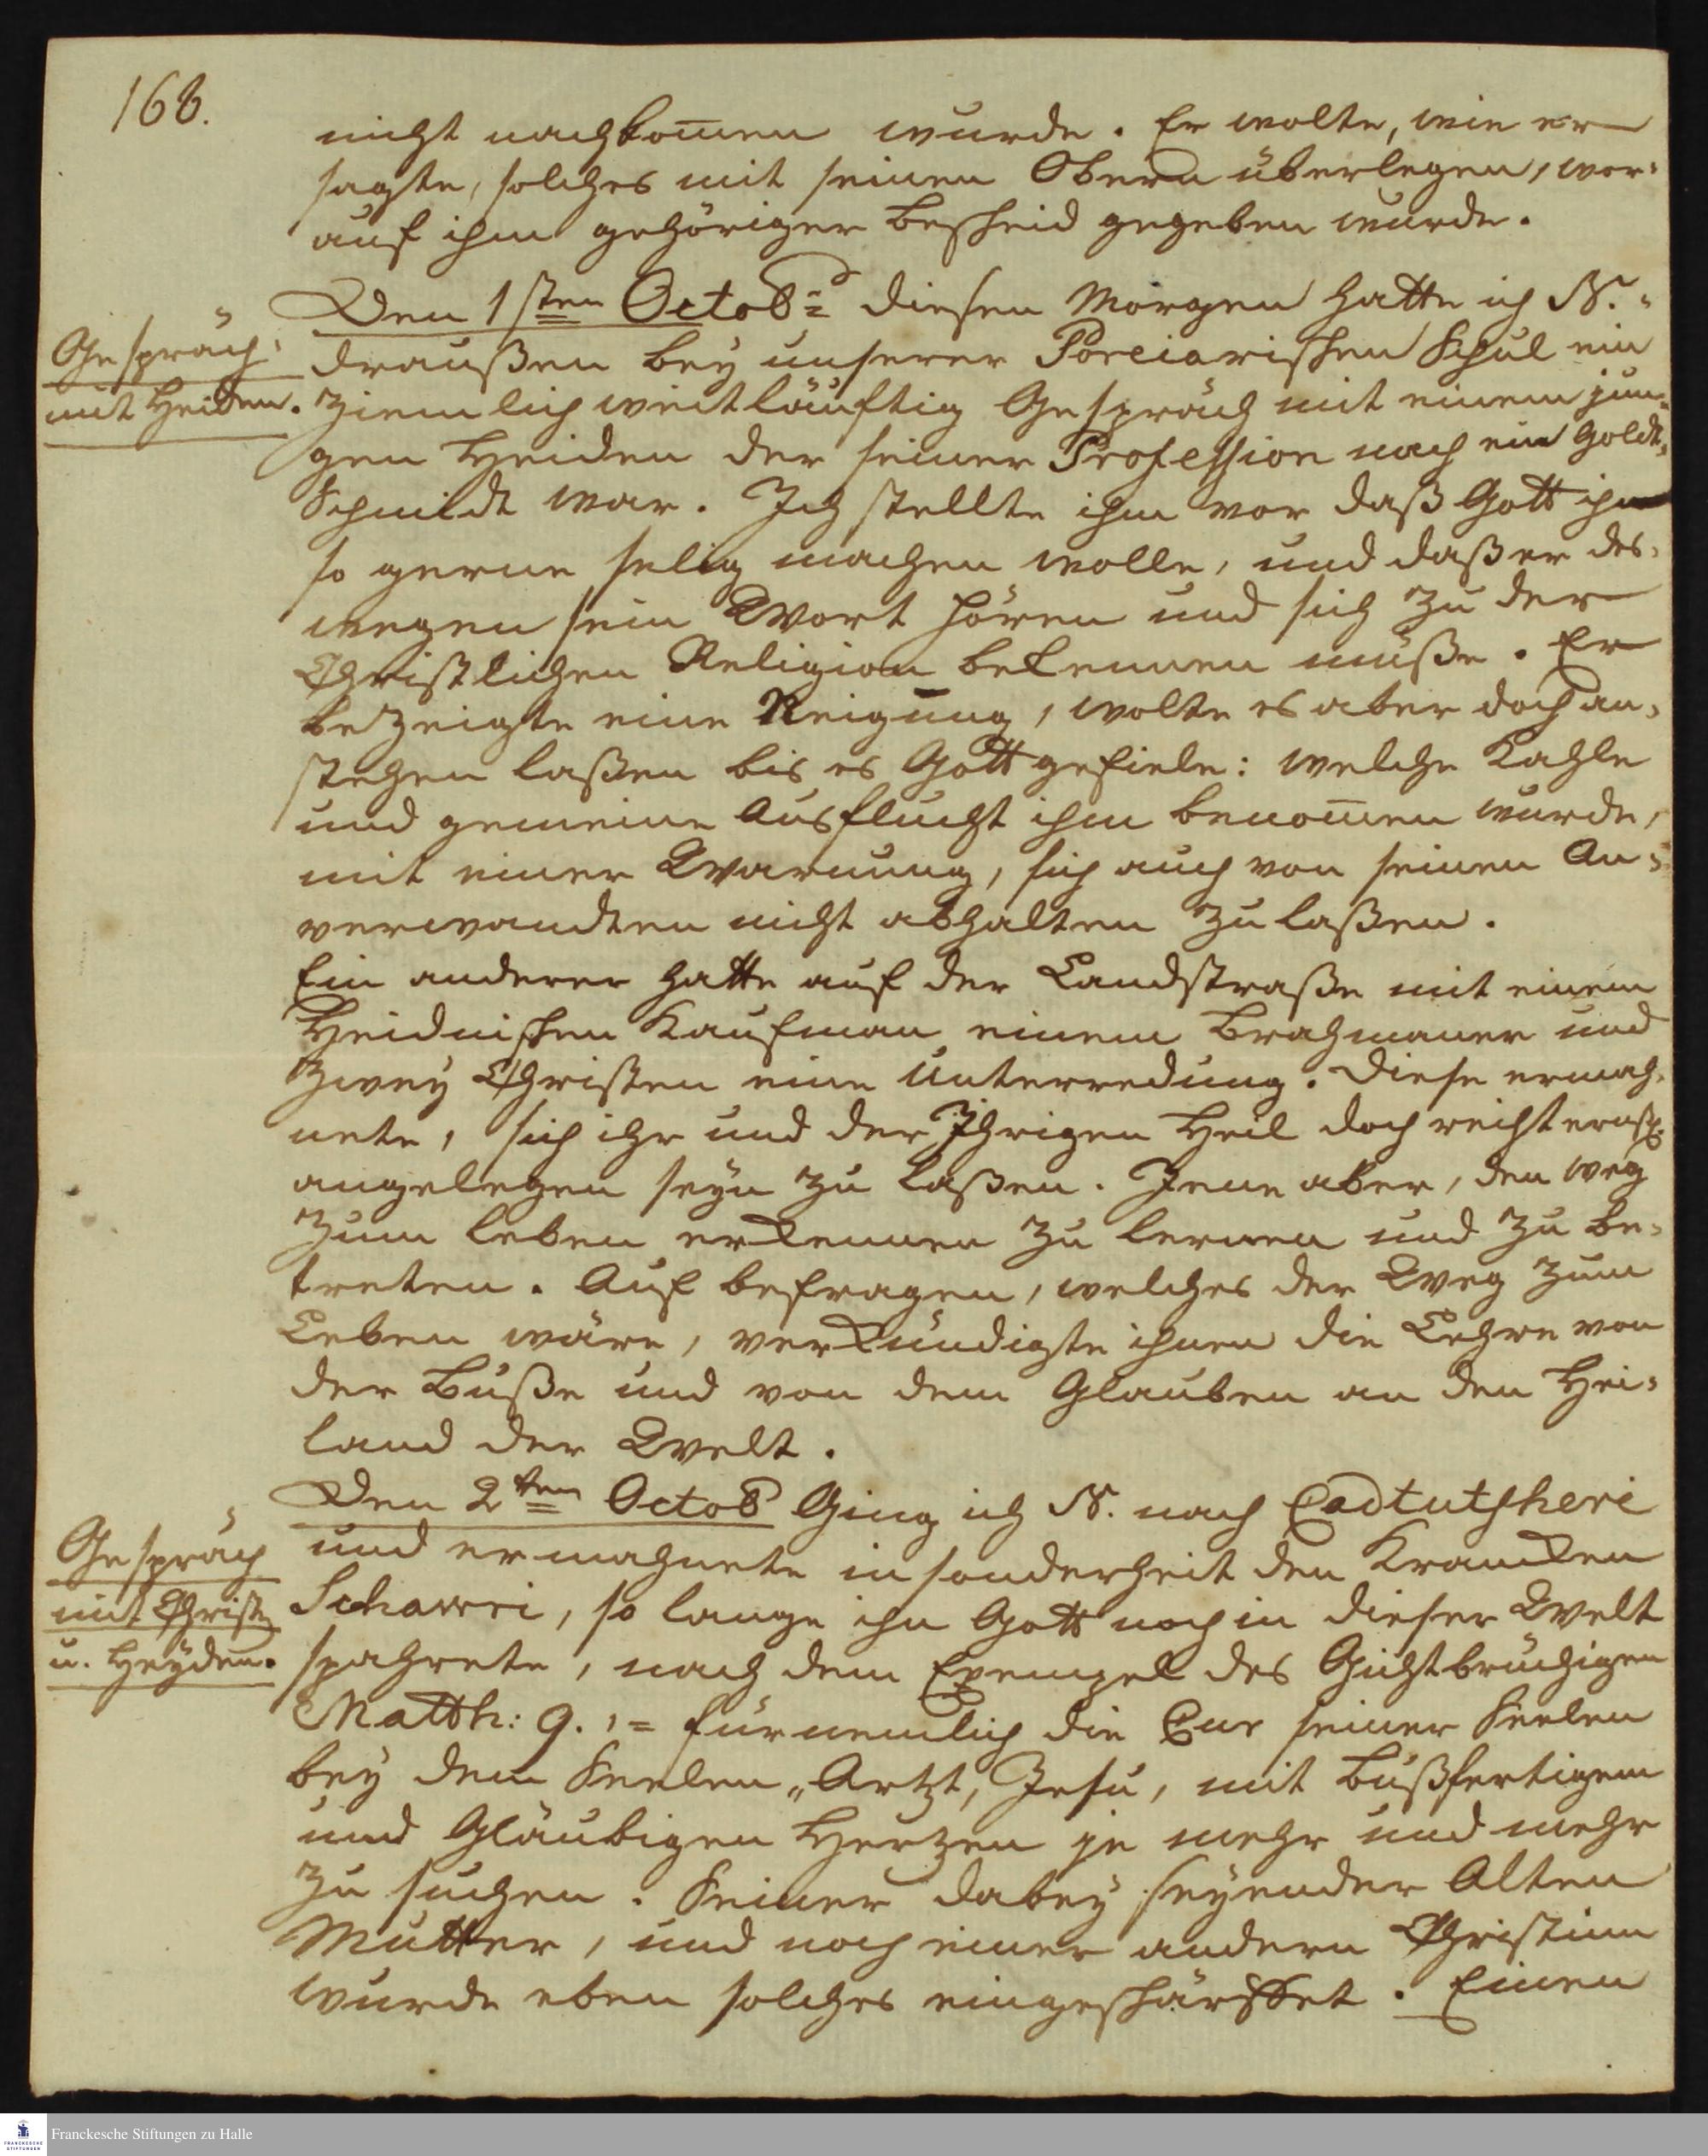 168.
nicht nachkom̄en wurde. Er wolte, wie er
sagte, solches mit seinen Obern überlegen, wor-
auf ihm gehöriger Bescheid gegeben wurde.
Den 1sten Octobr: diesen Morgen hatte ich N.
Gespräch
mit Heiden.
draußen bey unserer Poreiarischen Schul ein
ziemlich weitläuftig Gespräch mit einem jun-
gen Heiden der seiner Profession nach ein Goldt-
Schmidt war. Ich stellte ihm vor daß Gott ihn
so gerne selig machen wolle, und daß er des-
wegen sein Wort hören und sich zu der
Christlichen Religion bekennen müße. Er
bezeigte eine Neigung, wolte es aber doch an-
stehen laßen bis es Gott gefiele: welche Kahle
und gemeine Ausflucht ihm benom̄en wurde,
mit einer Warnung, sich auch von seinen An-
verwandten nicht abhalten zu laßen.
Ein anderer hatte auf der Landstraße mit einem
Heidnischen Kaufman einem Brahmaner und
zwey Christen eine Unterredung. Diese ermah-
nete, sich ihr und der Ihrigen Heil doch recht ernstl.
angelegen seyn zu laßen. Jene aber, den Weg
zum Leben erkennen zu lernen und zu be-
treten. Auf befragen, welches der Weg zum
Leben wäre, verkündigte ihnen die Lehre von
der Buße und von dem Glauben an den Hei-
land der Welt.
Den 2ten Octob Ging ich N. nach Cadtutscheri
Gespräch
mit Christ.
u. Heyden.
und ermahnete insonderheit den Krancken
Schawri, so lange ihn Gott noch in dieser Welt
spahrete, nach dem Exempel des Gichtbrüchigen
Matth: 9. 1= fürnemlich die Cur seiner Seelen
bey dem Seelen„Artzt, Jesu, mit bußfertigem
und Gläubigen Hertzen je mehr und mehr
zu suchen. Seiner dabey seyender Alten
Mutter, und noch einer andern Christinn
wurde eben solches eingeschärffet. Einen
Franckesche Stiftungen zu Halle